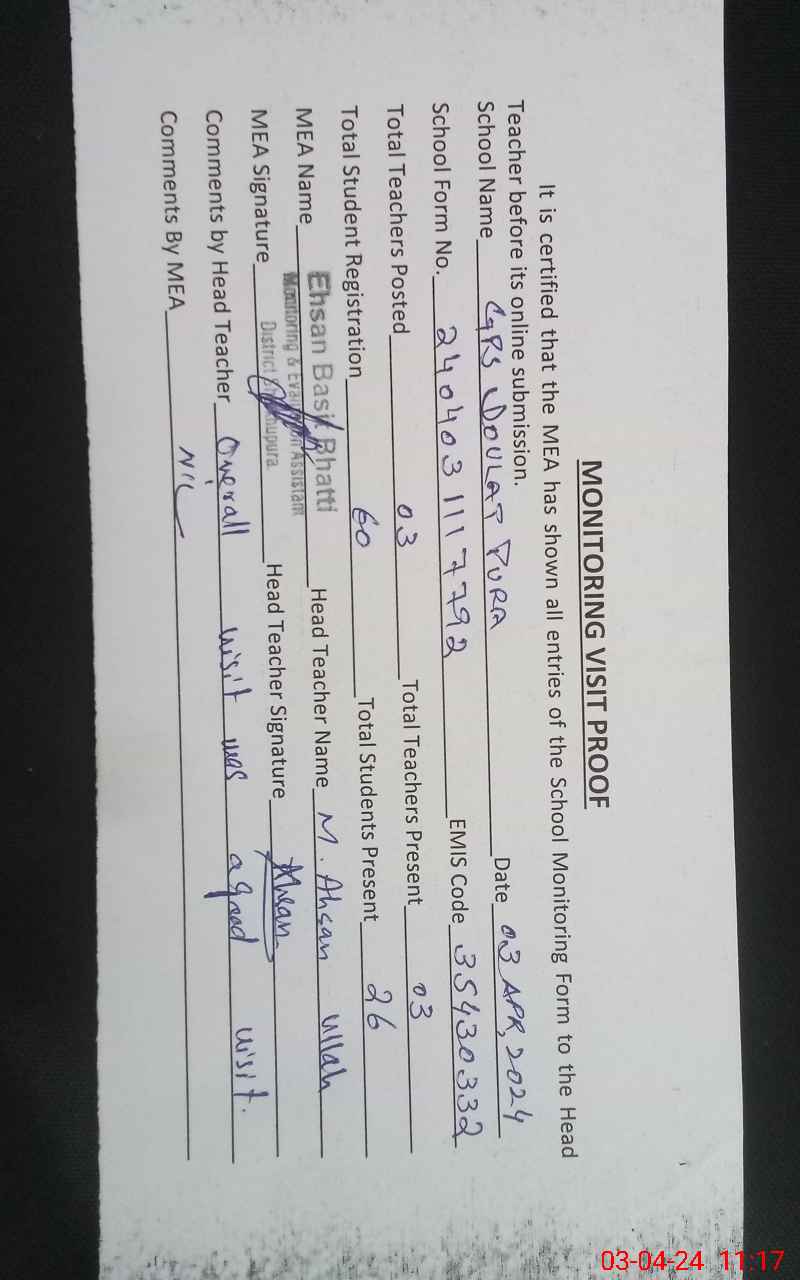 MONITORING VISIT PROOF
It is certified that the MEA has shown all entries of the School Monitoring Form to the Head
Teacher before its online submission.
School Name GPS DOULAT PURA Date 03 APR, 2024
School Form No. 240403111 7792 EMIS Code 35430332
Total Teachers Posted 03 Total Teachers Present 03
Total Student Registration 60 Total Students Present 26
MEA Name Ehsan Basit Bhatti Head Teacher Name M. Ahsan Ullah
Monitoring & Evaluation Assistant
District
MEA Signature Head Teacher Signature Ahsan
Comments by Head Teacher Overall visit was a good visit.
Comments By MEA NIL
03-04-24 11:17